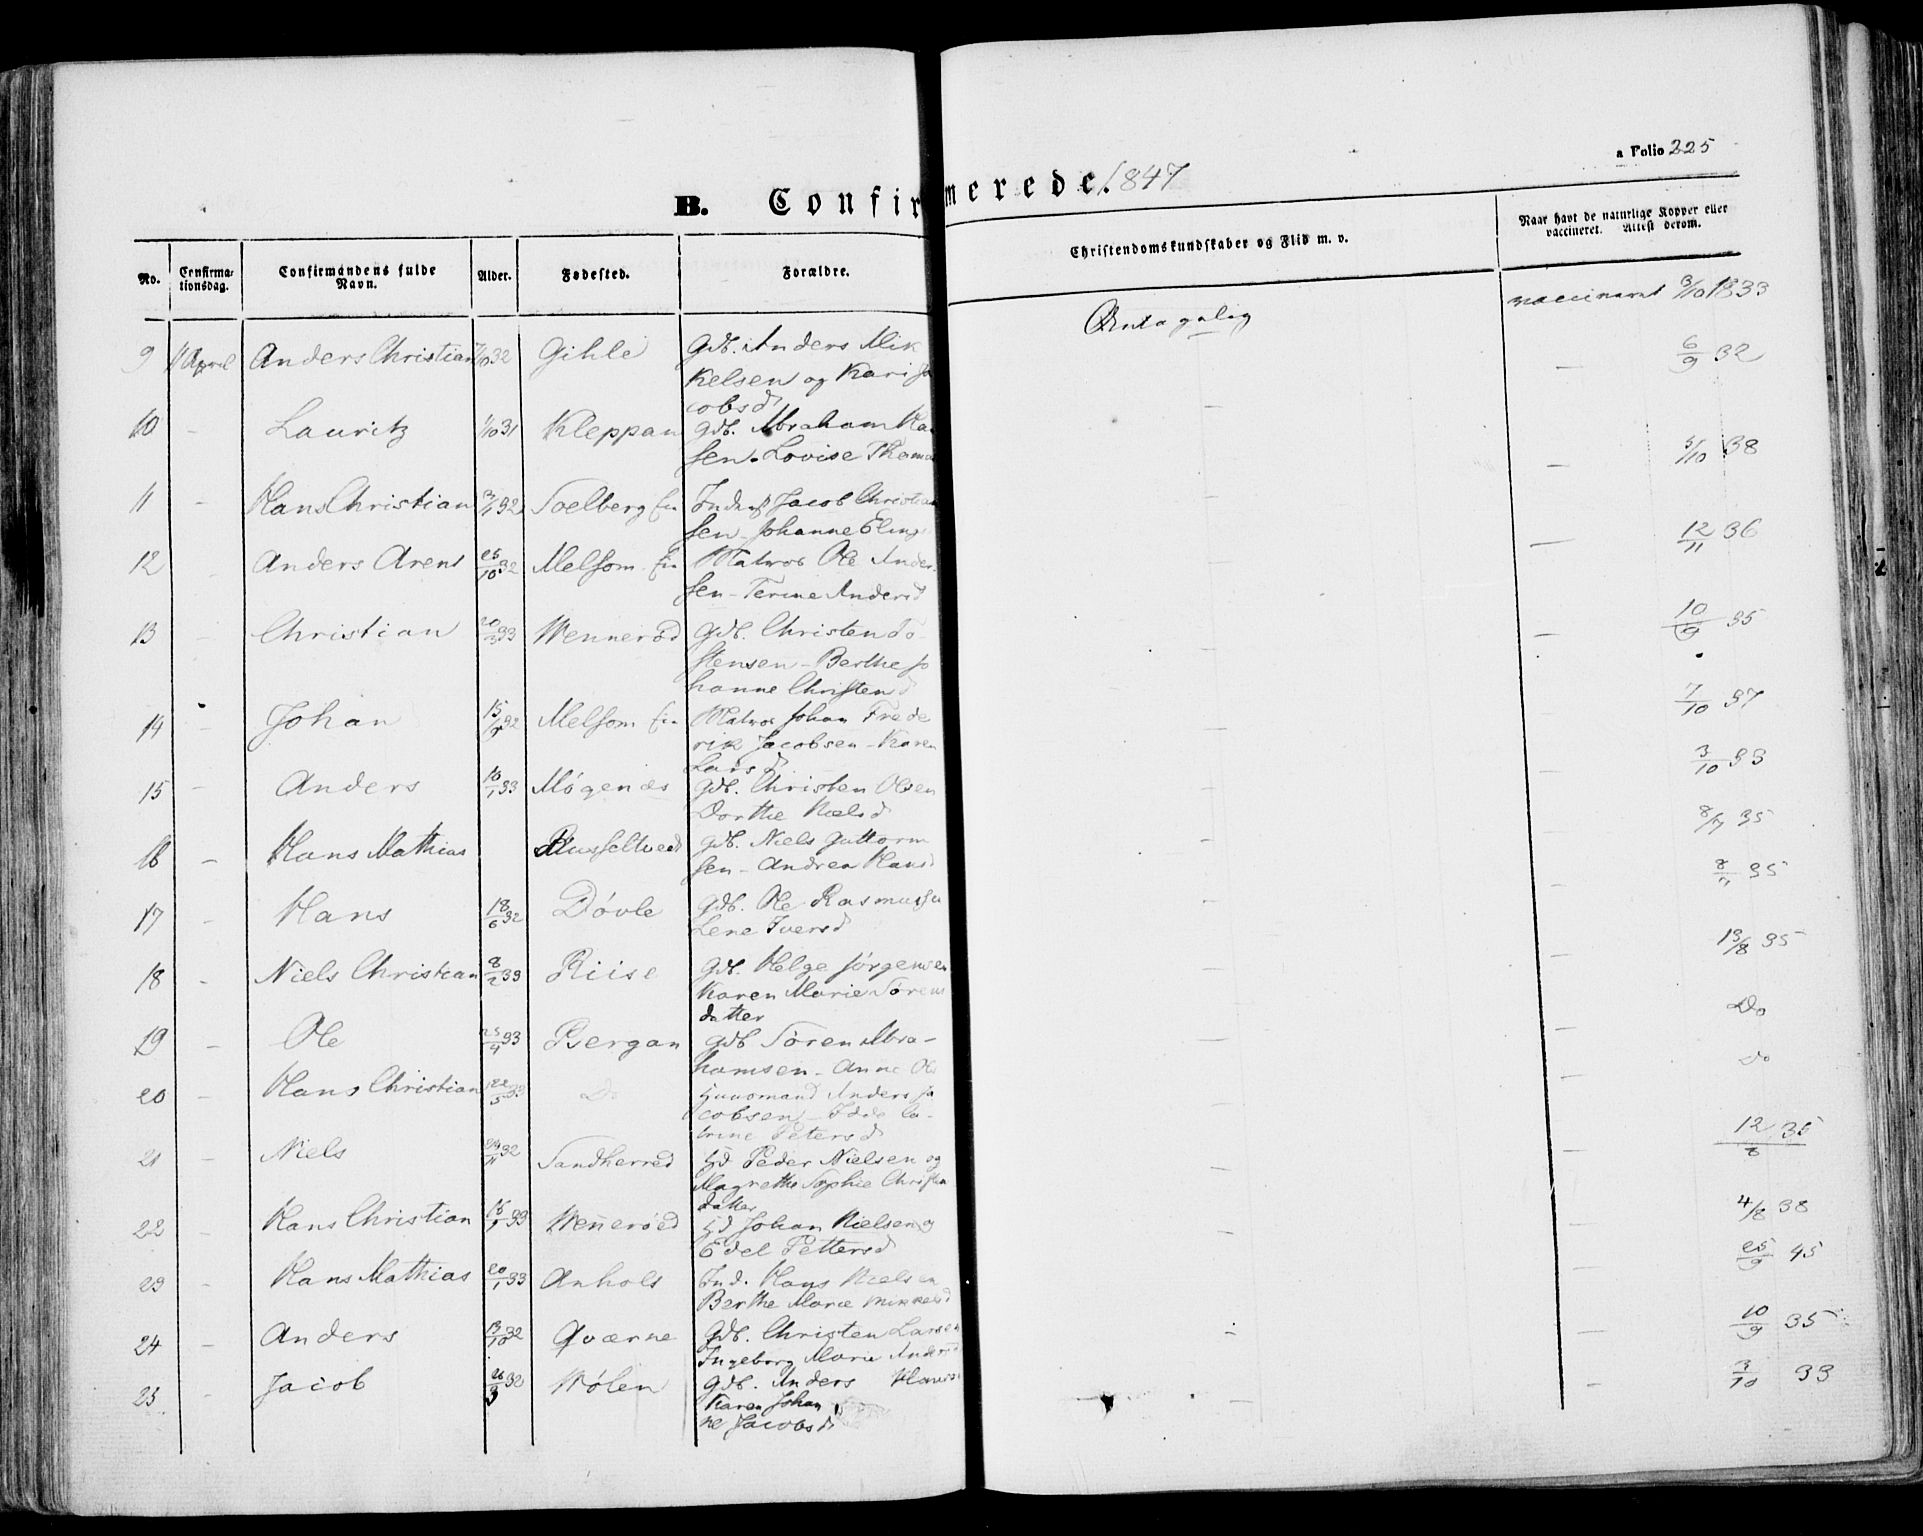 a Folio 225
B. Confirmerede. 1847
No.
Confirma-
tionsdag.
Confirmandens fulde
Navn.
Alder.
Fødested.
Forældre.
Christendomskundskaber og Flid m. v.
Naar havt de naturlige Kopper eller
vaccineret. Attest derom.
9 April Anders Christian 32 Gihle Gdb. Anders Mik Antagelig vaccineret 3/10 1833
kelsen og Kari Ja
cobsd
10 - Lauritz 1/10 31 Kleppan Gdb. Abraham Han - - 6/9 32
sen. Lovise Thoma
11 - Hans Christian 32 Soelberg Inderst Jacob Christian - - 5/10 38
sen - Johanne Eling
12 - Anders Arent 25/10 32 Melsom Matros Ole Ander - - 12/11 36
sen - Terine Andersd
13 - Christian 20/3 33 Wennerød Gdb. Christen To - - 10/9 35
stensen - Berthe Jo
hanne Christend
14 - Johan 15 32 Melsom Matros Johan Frede - - 7/10 37
rik Jacobsen - Karen
Larsd
15 - Anders 16/1 33 Møgenæs Gdb. Christen Olsen - - 3/10 33
Dorthe Nielsd
16 - Hans Mathias Gdb. Niels Guttorm - - 8/7 35
sen - Andrea Hansd
17 - Hans 18/6 32 Døvle Gdb. Ole Rasmussen - - 35
Lene Iversd
18 - Niels Christian 8/2 33 Riise Gdb. Helge Jørgensen - - 13/8 35
Karen Marie Sørens
datter
19 - Ole 25/4 33 Bergan Gdb Søren Abra- - - Do
hamsen - Anne Ols
20 Hans Christian 22/5 33 Do Huusmand Anders Ja - - Do
cobsen - Ca-
trine Petersd
21 - Niels 24/11 32 Sandherred Hd Peder Nielsen og - - 12/8 35
Magrethe Sophie Christen
datter
22 - Hans Christian 33 Wennerøed Hd Johan Nielsen og - - 4/8 38
Edel Pettersd
23 - Hans Mathias 20/1 33 Anholt Ind. Hans Nielsen - 25/9 45
Berthe Marie Mikkelsd
24 - Anders 13/10 32 Qværne Gdb. Christen Larsen - - 10/9 35
Ingeborg Marie Andersd
25 - Jacob 26/3 32 Mølen Gdb. Anders Hans - 3/10 33
Karen Johan
ne Jacobsd